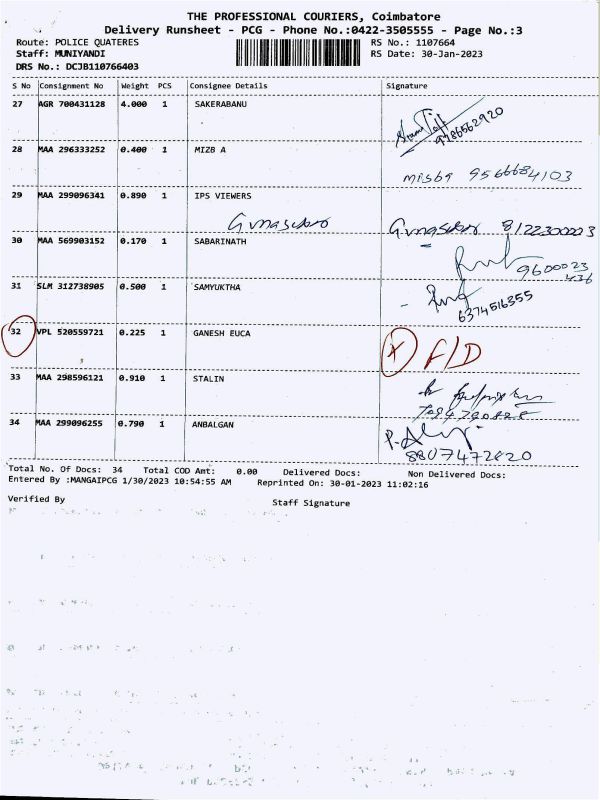 THE PROFESSIONAL COURIERS, Coimbatore
Delivery Runsheet - PCG - Phone No.:0422-3505555 - Page No.:3
Route: POLICE QUATERES RS No.: 1107664
Staff: MUNIYANDI RS Date: 30-Jan-2023
DRS No.: DCJB110766403
S No Consignment No Weight PCS Consignee Details Signature
27 AGR 700431128 4.000 1 SAKERABANU
9786562920
28 MAA 296333252 0.400 1 MIZB A
misba 9566684103
29 MAA 299096341 0.890 1 IPS VIEWERS
Gunasekar Gunasekar 8122300003
30 MAA 569903152 0.170 1 SABARINATH
9600023
436
31 SLM 312738905 0.500 1 SAMYUKTHA
6374516355
32 VPL 520559721 0.225 1 GANESH EUCA
X F/D
33 MAA 298596121 0.910 1 STALIN
34 MAA 299096255 0.790 1 ANBALGAN
8807472820
Total No. Of Docs: 34 Total COD Amt: 0.00 Delivered Docs: Non Delivered Docs:
Entered By :MANGAIPCG 1/30/2023 10:54:55 AM Reprinted On: 30-01-2023 11:02:16
Verified By Staff Signature